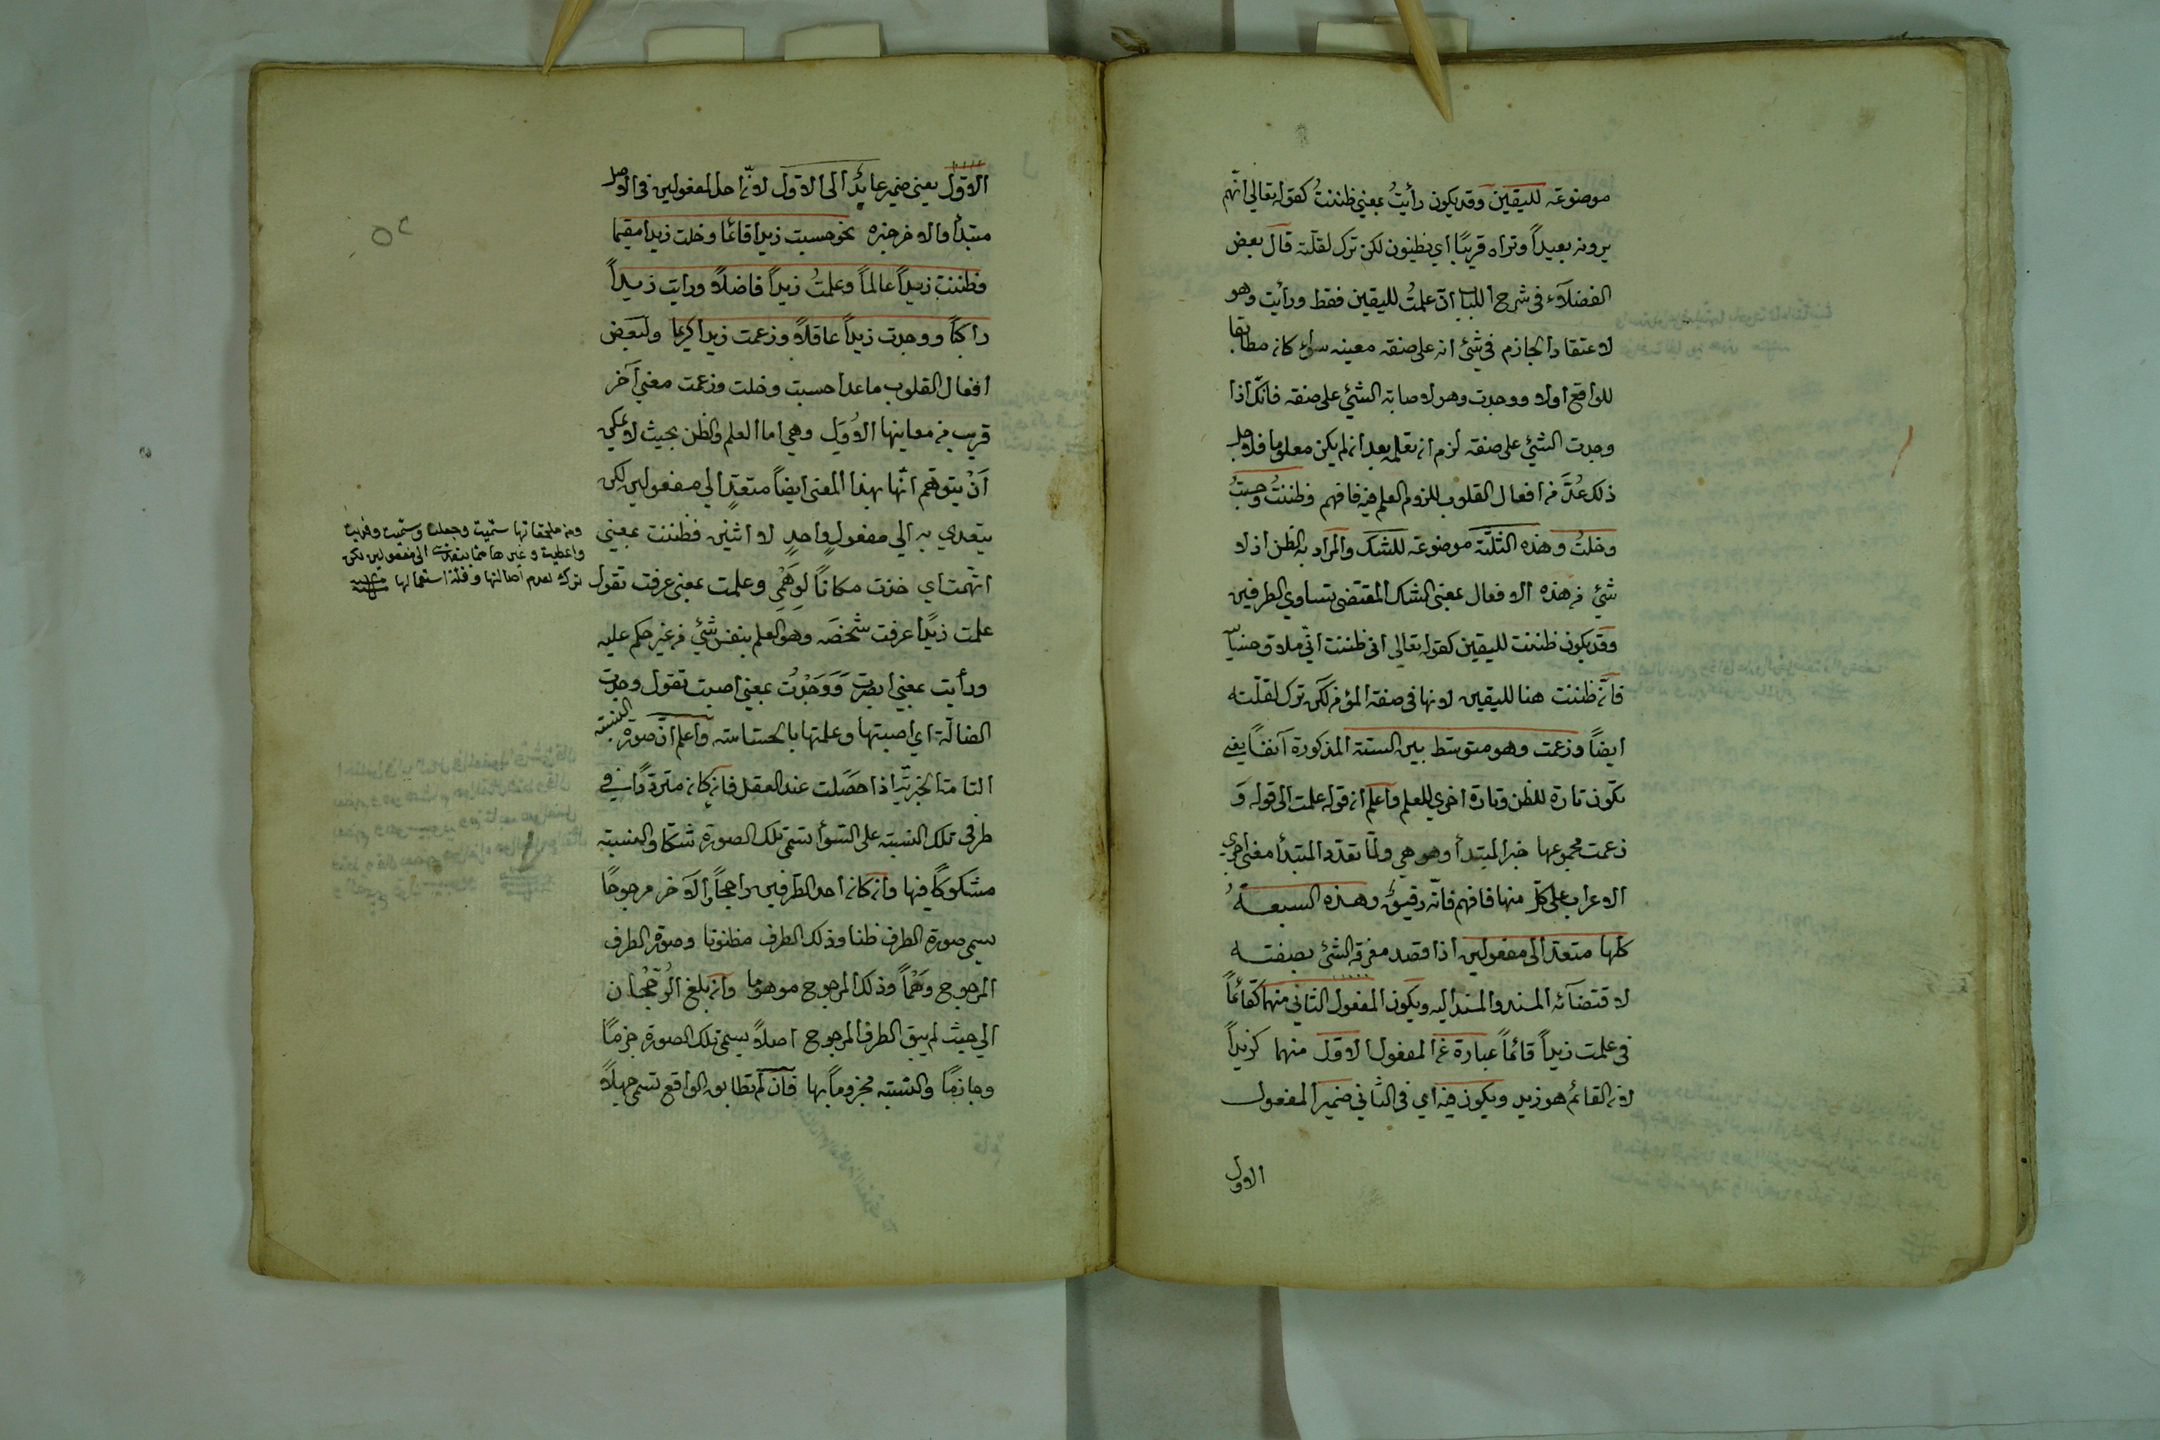 موضوعة لليقين وقد يكون رأيتُ بمعني ظننتُ كقوله تعالي انّهم
يرونه بعيداً وتراه قريبًا اي يظنون لكن ترك لقلّته قال بعض
الفضلاء في شرح اللباب انّ علمتُ لليقين فقط ورأيت وهو
لاعتقاد الجازم في شئ انه علي صفة معينه سواء كانه مطابقا
للواقع اولا ووجدت وهو لاصابة الشئ علي صفة فانّك اذا
وجدت الشئ علي صفة لزم ان تعلمه بعد ان لم يكن معلوما فلاجل
ذلك عُدَّ من افعال القلوب للزوم العلم فيه فافهم وظننتُ وحسبتُ
وخلتُ وهذه الثلثة موضوعة للشك والمراد به الظن اذ لا
شئ من هذه الافعال بمعني الشك المقتضي تساوي الطرفين
وقد يكون ظننت لليقين كقوله تعالي اني ظننت انّي ملاق حسابيه
فانّ ظننت هنا لليقين لانها في صفة المؤمن لكن ترك لقلّته
ايضاً وزعمت وهو متوسّط بين الستة المذكورة آنفاً يعني
تكون تارة للظن وتارة اخري للعلم واعلم ان قوله علمت الي قوله وَ
زعمت مجموعها خبر المبتدأ وهو هي ولمّا تعدّد المبتدأ معني اجري
الاعراب علي كلّ منها فافهم فانّه دقيق وهذه السبعة
كلّها متعد الي مفعولين اذا قصد معرفة الشئ بصفته
لاقتضائه المسند والمسند اليه ويكون المفعول الثاني منهما كقائماً
في علمت زيداً قائماً عبارة عن المفعول الاوّل منهما كزيداً
لان القائم هو زيد ويكون فيه اي في الثاني ضمير المفعول
الاول
الاوّل يعني ضمير عايد الي الاول لانّه احد المفعولين في الاصل
مبتدأ والاخر خبره نحو حسبت زيدا قائما وخلت زيدا مقيما
وظننت زيداً عالماً وعلمتُ زيداً فاضلاً ورايت زيداً
راكباً ووجدت زيداً عاقلاً وزعمت زيدا كريما ولبعض
افعال القلوب ماعدا حسبت وخلت وزعمت معني آخر
قريب من معاينها الاُوَل وهي اما العلم والظن بحيث لا يمكن
اَنْ يتوهّم انّها بهذا المعني ايضاً متعدٍ الي مفعولين لكن
يتعدي به الي مفعولٍ واحدٍ لا اثنين فظننت بمعني
اتّهمت اي خذت مكاناً لِوَهْمي وعلمت بمعني عرفت تقول
علمت زيدًا عرفت شخصَه وهو العلم بنفس شئٍ من غير حكم عليه
ورأيت بمعني ابصرت وَوَجَدْتُ بمعني اصبت تقول وجدت
الضالّة اي اصبتها وعلمتها بالحساسة واعلم انّ صورة النسبة
التامة الخبريّة اذا حصَلت عند العقل فان كان متردّدًا في
طرفي تلك النسبة علي السوأ تسمّي تلك الصورة شكّا والنسبة
مشكوكاً فيها وان كان احد الطّرفين راجحاً والآخر مرجوحًا
سمي صورة الطرف ظنا وذلك الطرف مظنونا وصورة الطرف
المرجوح وَهْماً وذلك المرجوح موهوما وان بلغ الرُجحان
الي حيث لم يبق الطرف المرجوح اصلاً يسمّي تلك الصورة جزمًا
وجازمًا والنسبة مجزوماً بها فان لم تطابق الواقع تسمي جهلاً
ومن ملحقاتها سمّيت وجعلت
واعطيت وغيرها مما يتعدي الي مفعولين لكن
ترك لعدم اصالتها وقلة استعمالها
٥٢